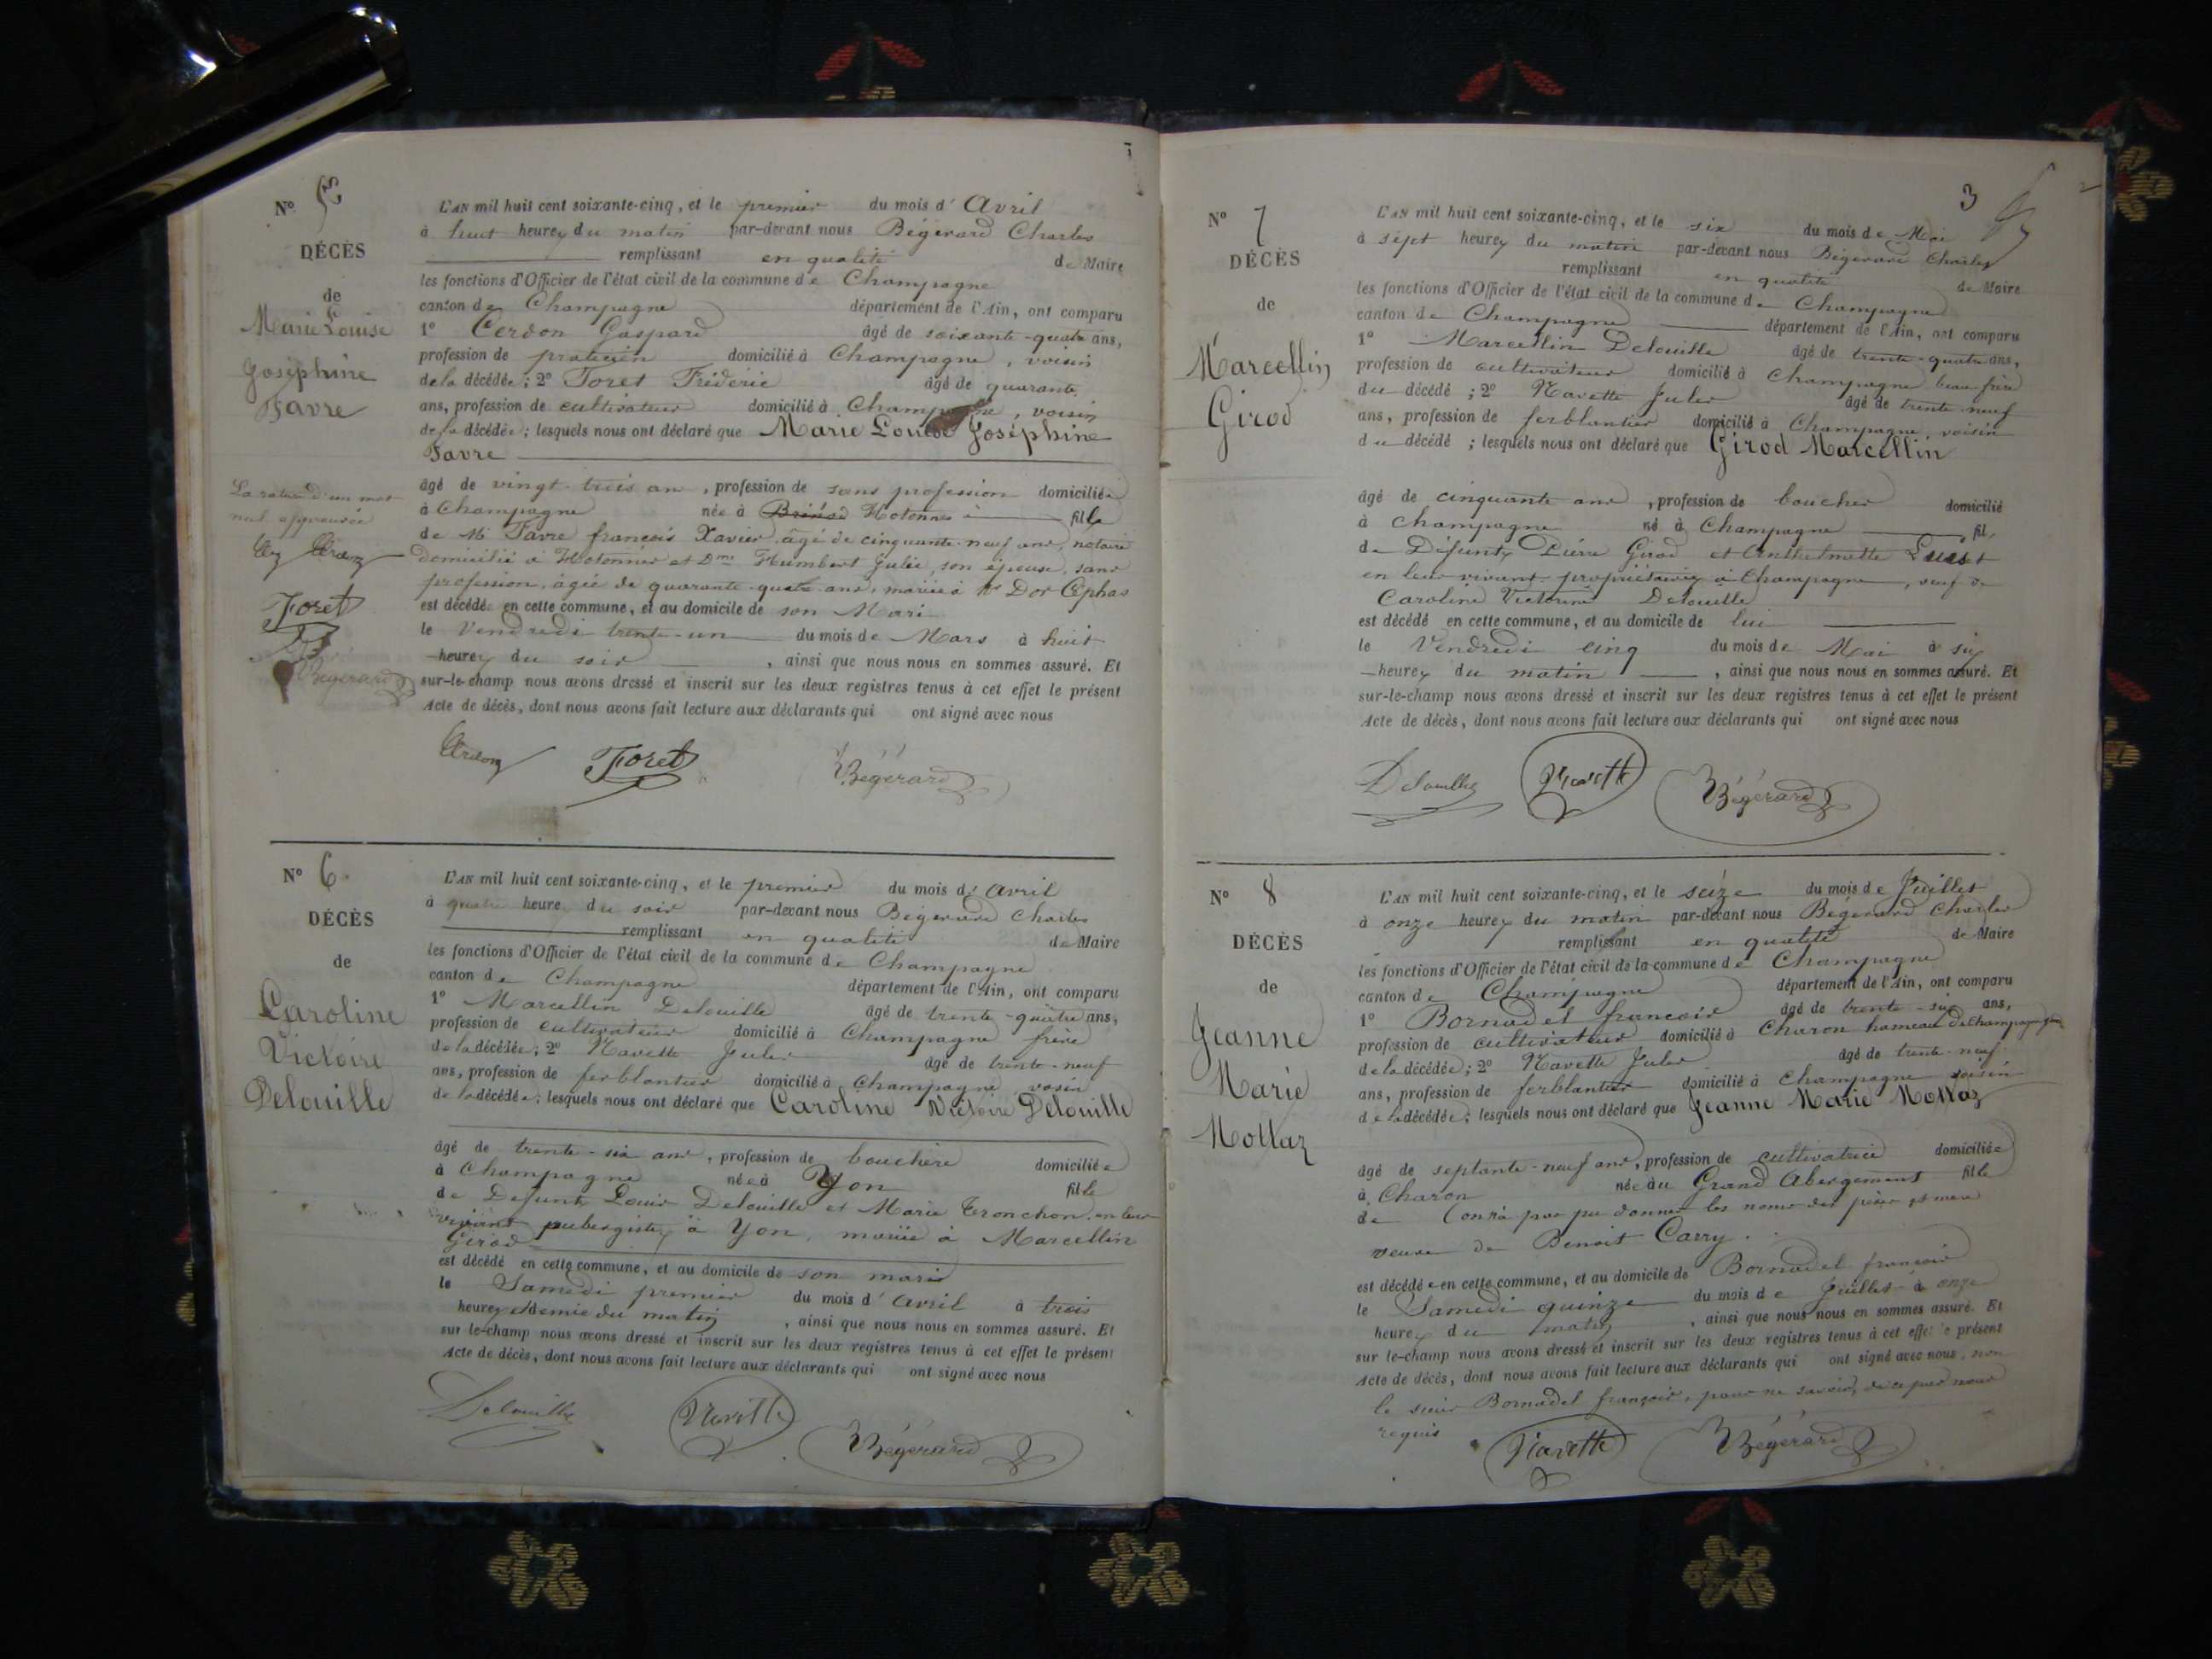 N° 5
DÉCÈS
de
Marie Louise
Joséphine
Favre
La rature d'un mot
nul approuvée
Foret
Bégérard
L'AN mil huit cent soixante-cinq, et le premier du mois d'Avril
à huit heures du matin par-devant nous Bégérard Charles
remplissant en qualité de Maire
les fonctions d'Officier de l'état civil de la commune de Champagne
canton de Champagne département de l'Ain, ont comparu
1° Cerdon Gaspard âgé de soixante-quatre ans,
profession de praticien domicilié à Champagne, voisin
de la décédée; 2° Foret Fréderic âgé de quarante
ans, profession de cultivateur domicilié à Champagne, voisin
de la décédée; lesquels nous ont déclaré que Marie Louise Joséphine
Favre
âgé de vingt-trois ans, profession de sans profession domiciliée
à Champagne née à Brénod Hotonnes fille
de Mr Favre françois Xavier âgé de cinquante-neuf ans, notaire
domicilié à Hotonnes et Dme Humbert Julie, son épouse, sans
profession, âgée de quarante-quatre ans, mariée à Mr Dor Céphas
est décédée en cette commune, et au domicile de son Mari
le Vendredi trente-un du mois de Mars à huit
heures du soir, ainsi que nous nous en sommes assuré. Et
sur-le-champ nous avons dressé et inscrit sur les deux registres tenus à cet effet le présent
Acte de décès, dont nous avons fait lecture aux déclarants qui ont signé avec nous
Cerdon Foret Bégérard
N° 6.
DÉCÈS
de
Caroline
Victoire
Delouille
L'AN mil huit cent soixante-cinq, et le premier du mois d'Avril
à quatre heures du soir par-devant nous Bégérard Charles
remplissant en qualité de Maire
les fonctions d'Officier de l'état civil de la commune de Champagne
canton de Champagne département de l'Ain, ont comparu
1° Marcellin Delouille âgé de trente-quatre ans,
profession de cultivateur domicilié à Champagne frère
de la décédée; 2° Navette Jules âgé de trente-neuf
ans, profession de ferblantier domicilié à Champagne voisin
de la décédée; lesquels nous ont déclaré que Caroline Victoire Delouille
âgé de trente-six ans, profession de bouchère domiciliée
à Champagne née à Yon fille
de Defunts Louis Delouille et Marie Tronchon en leur
vivant aubergistes à Yon, mariée à Marcellin
Girod
est décédé en cette commune, et au domicile de son mari
le Samedi premier du mois d'avril à trois
heures et demie du matin, ainsi que nous nous en sommes assuré. Et
sur-le-champ nous avons dressé et inscrit sur les deux registres tenus à cet effet le présent
Acte de décès, dont nous avons fait lecture aux déclarants qui ont signé avec nous
Delouille Navette Bégérard
3
N° 7
DÉCÈS
de
Marcellin
Girod
L'AN mil huit cent soixante-cinq, et le six du mois de Mai
à sept heures du matin par-devant nous Bégérard Charles
remplissant en qualité de Maire
les fonctions d'Officier de l'état civil de la commune de Champagne
canton de Champagne département de l'Ain, ont comparu
1° Marcellin Delouille âgé de trente-quatre ans,
profession de cultivateur domicilié à Champagne beau-frère
du décédé; 2° Navette Jules âgé de trente-neuf
ans, profession de ferblantier domicilié à Champagne, voisin
du décédé; lesquels nous ont déclaré que Girod Marcellin
âgé de cinquante ans, profession de boucher domicilié
à Champagne né à Champagne fils
de Défunts Pierre Girod et Anthelmette
en leur vivant propriétaires à Champagne, veuf de
Caroline Victorine Delouille
est décédé en cette commune, et au domicile de lui
le Vendredi cinq du mois de Mai à six
heures du matin, ainsi que nous nous en sommes assuré. Et
sur-le-champ nous avons dressé et inscrit sur les deux registres tenus à cet effet le présent
Acte de décès, dont nous avons fait lecture aux déclarants qui ont signé avec nous
Delouille Navette Bégérard
N° 8
DÉCÈS
de
Jeanne
Marie
Mollaz
L'AN mil huit cent soixante-cinq, et le seize du mois de Juillet
à onze heures du matin par-devant nous Bégérard Charles
remplissant en qualité de Maire
les fonctions d'Officier de l'état civil de la commune de Champagne
canton de Champagne département de l'Ain, ont comparu
1° Bornadel françois âgé de trente-six ans,
profession de cultivateur domicilié à Charon hameau de Champagne
de la décédée; 2° Navette Jules âgé de trente-neuf
ans, profession de ferblantier domicilié à Champagne voisin
de la décédée; lesquels nous ont déclaré que Jeanne Marie Mollaz
âgé de septante-neuf ans, profession de cultivatrice domiciliée
à Charon née au Grand Abergement fille
de (on n'a pas pu donner les noms des père et mère
veuve de Benoit Carry.
est décédée en cette commune, et au domicile de Bornadel françois
le Samedi quinze du mois de Juillet à onze
heures du matin, ainsi que nous nous en sommes assuré. Et
sur-le-champ nous avons dressé et inscrit sur les deux registres tenus à cet effet le présent
Acte de décès, dont nous avons fait lecture aux déclarants qui ont signé avec nous, non
le sieur Bornadel françois, pour ne savoir, de ce par nous
requis
Navette Bégérard